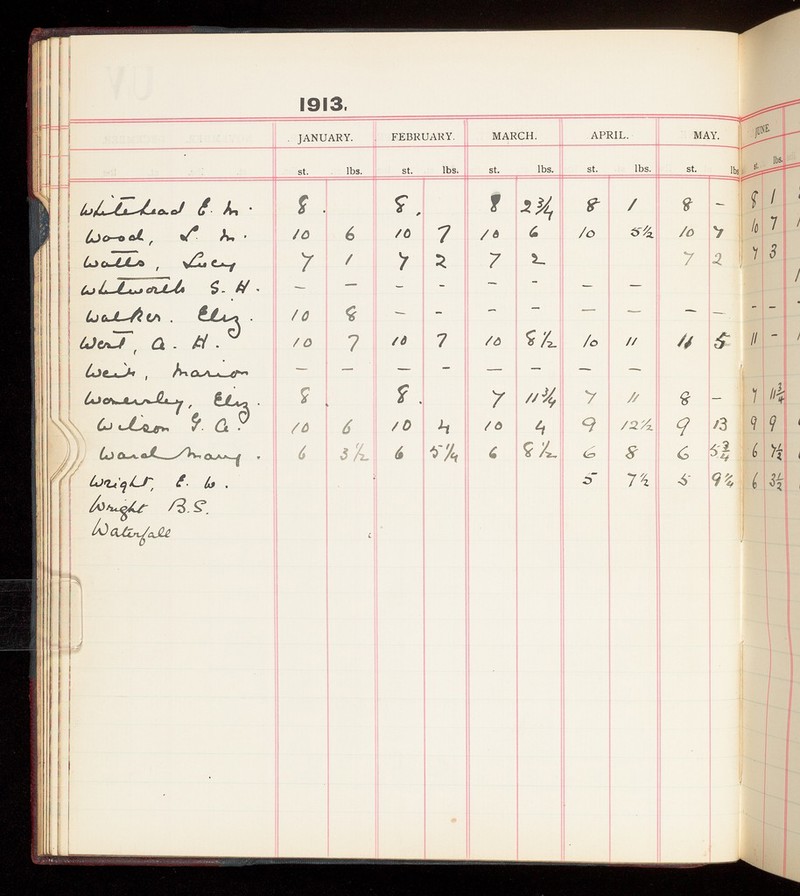 1913.
JANUARY. FEBRUARY. MARCH. APRIL. MAY. JUNE
st. lbs. st. lbs. st. lbs. st. lbs. st. lbs st. lbs.
Whitehead E. M. 8 . 8 . 8 2 3/4 8 1 8 - 8 1
Wood, L. M. 10 6 10 7 10 6 10 5 1/2 10 7 10 7
Watts, Lucy 7 1 7 2 7 2 7 2 7 3
Whitworth S. H. - - - - - - - -
Walker. Eliz. 10 8 - - - - - - - - - -
West, A. H. 10 7 10 7 10 8 1/2 10 11 11 5 11 -
Weir, Marion - - - - - - - -
Womersley, Eliz. 8 . 8 . 7 11 3/4 7 11 8 - 7 11 3/4
Wilson G. A. 10 6 10 4 10 4 9 12 1/2 9 13 9 9
Ward Mary. 6 3 1/2 6 5 1/4 6 8 1/2 6 8 6 5 3/4 6 7 1/2
Wright, E. W. 5 7 1/2 5 9 1/4 6 3 1/2
Wright B.S.
Waterfall